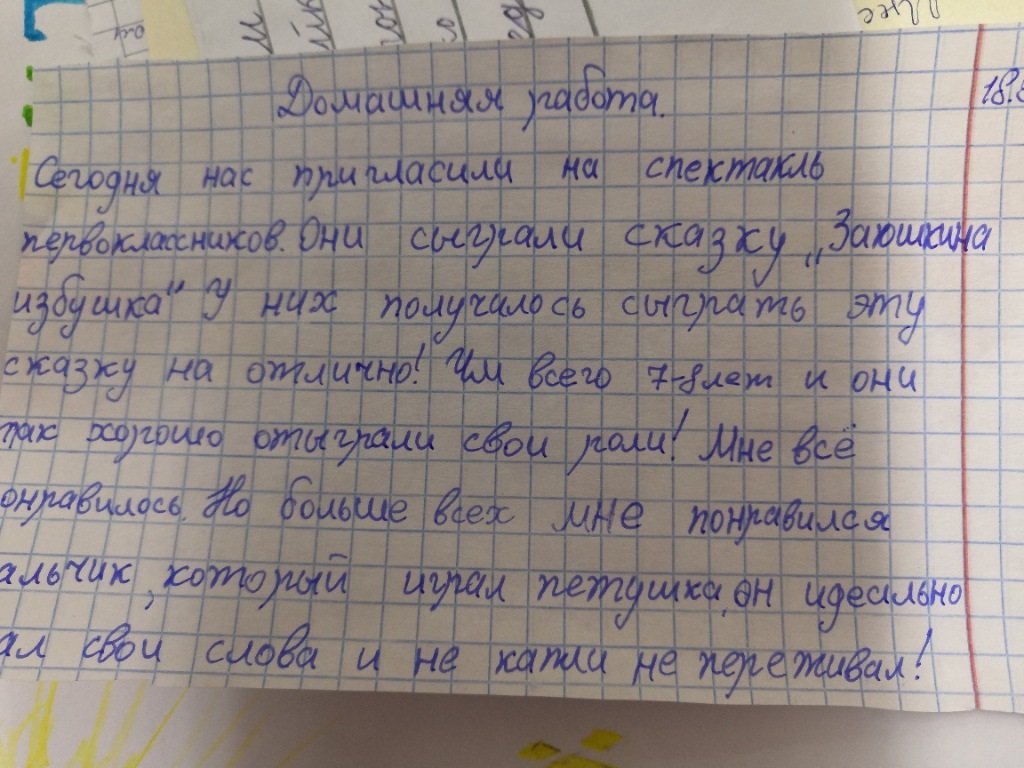 Домашняя работа.
Сегодня нас пригласили на спектакль
первоклассников. Они сыграли сказку „Заюшкина
избушка" У них получалось сыграть эту
сказку на отлично! Им всего 7-8лет и они
так хорошо отыграли свои роли! Мне всё
онравилось. Но больше всех мне понравился
альчик, который играл петушка, он идеально
ал свои слова и не капли не переживал!